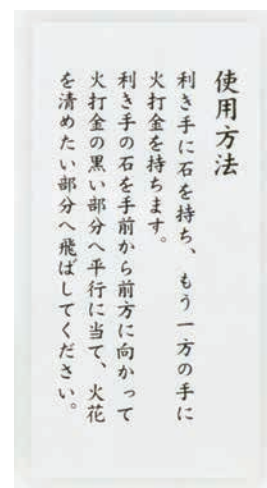 使用方法
利き手に石を持ち、もう一方の手に
火打金を持ちます。
利き手の石を手前から前方に向かって
火打金の黒い部分へ平行に当て、火花
を清めたい部分へ飛ばしてください。